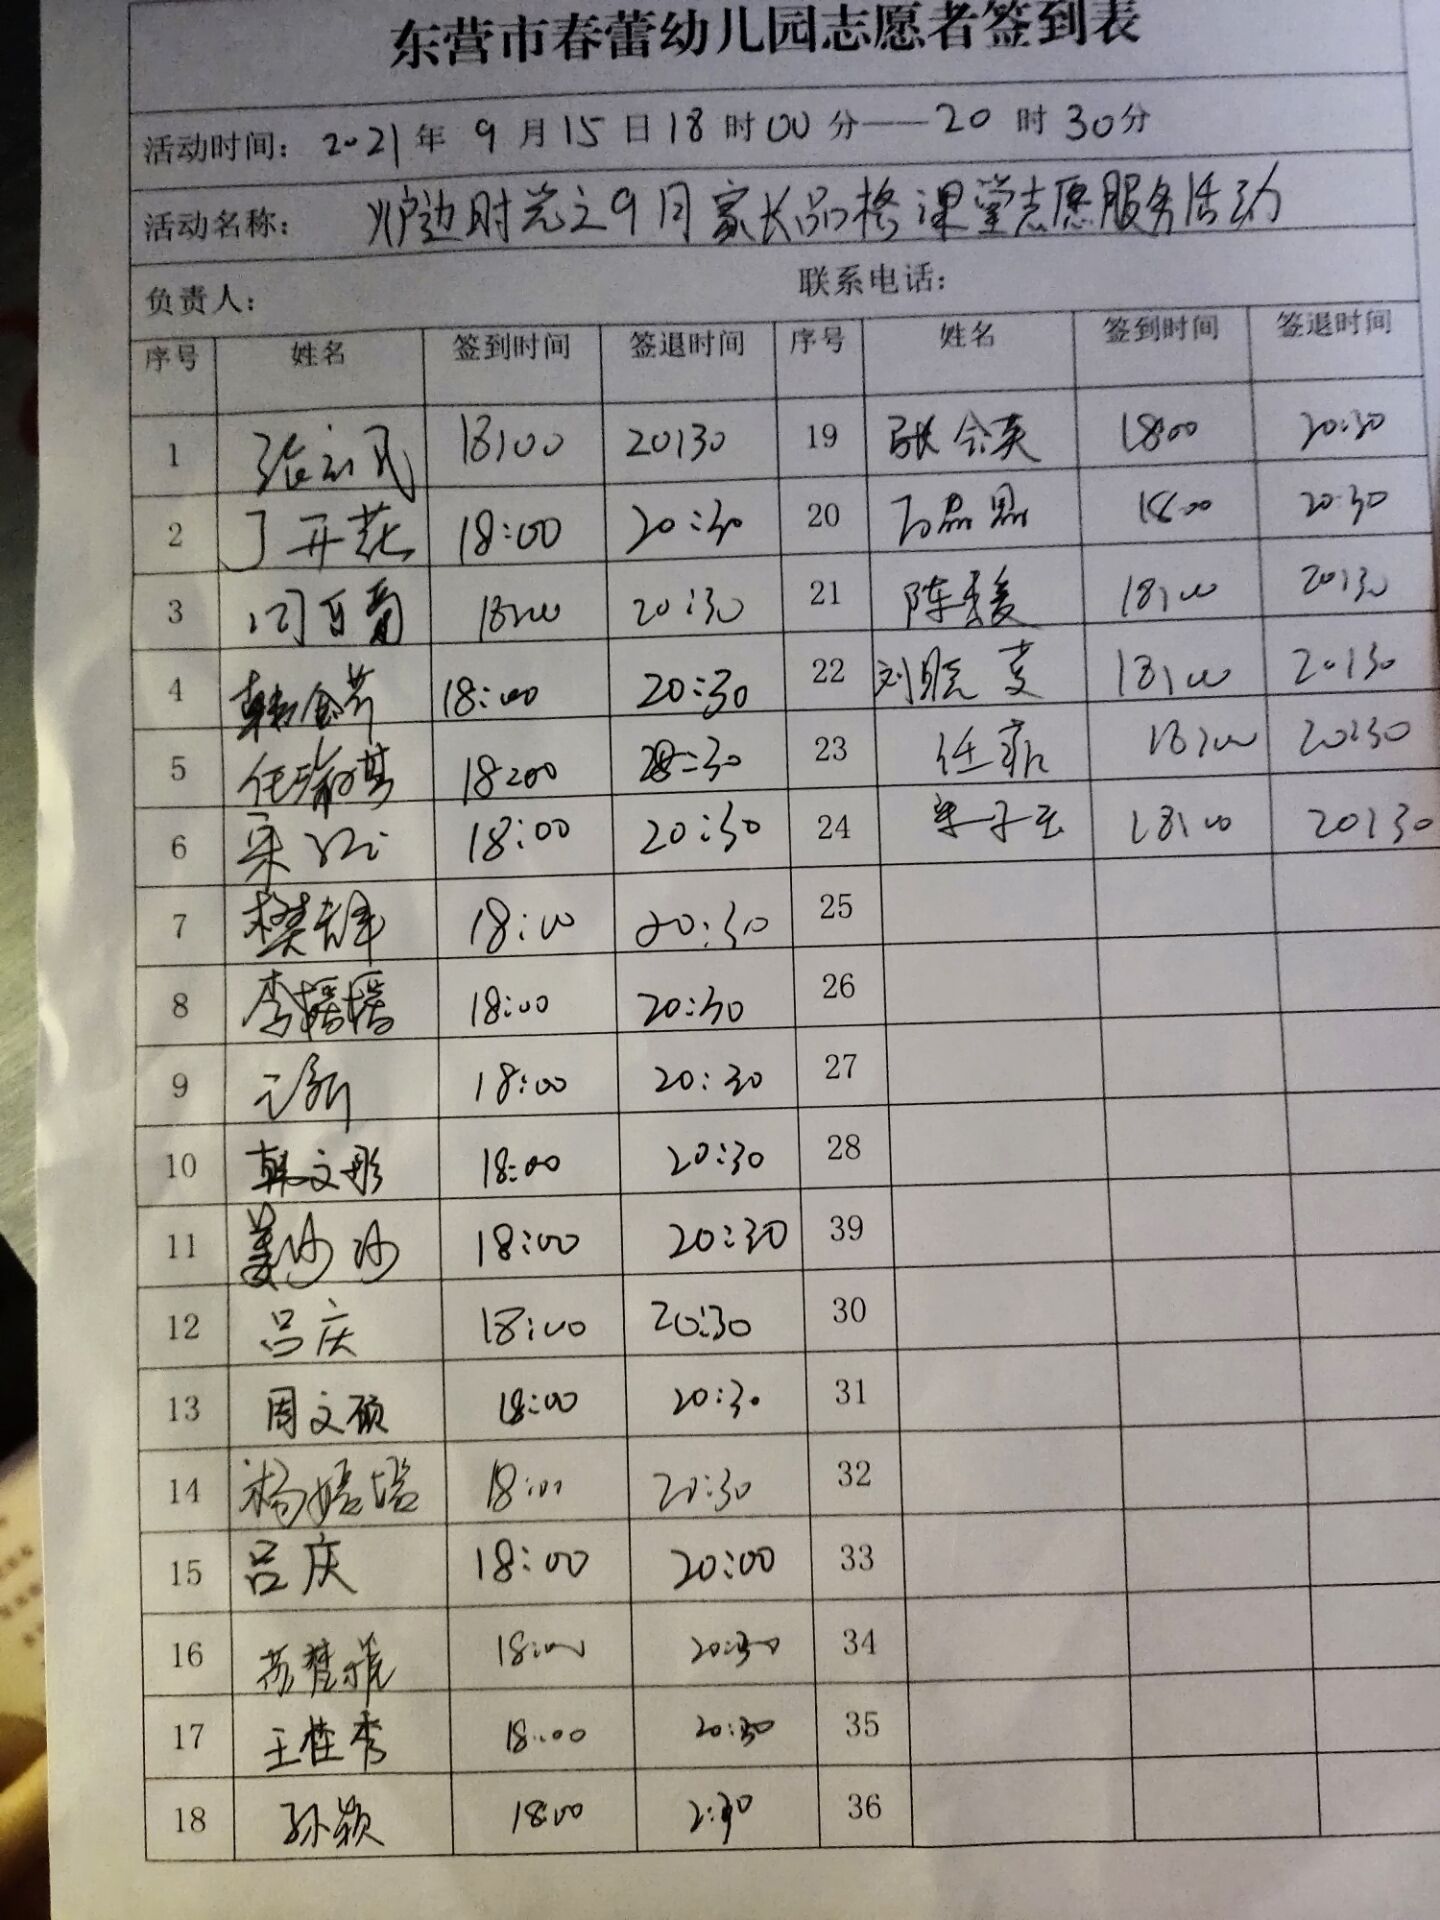 东营市春蕾幼儿园志愿者签到表
活动时间: 2021年 9月15日18时00分——20时30分
活动名称: 炉边时光之9月家长品格课堂志愿服务活动
负责人: 联系电话:
序号 姓名 签到时间 签退时间 序号 姓名 签到时间 签退时间
1 18:00 20:30 19 18:00 20:30
2 丁开花 18:00 20:30 20 18:00 20:30
3 18:00 20:30 21 陈 18:00 20:30
4 韩金芳 18:00 20:30 22 刘晓 18:00 20:30
5 任 18:00 20:30 23 任 18:00 20:30
6 宋 18:00 20:30 24 18:00 20:30
7 樊 18:00 20:30 25
8 李媛媛 18:00 20:30 26
9 18:00 20:30 27
10 韩文彤 18:00 20:30 28
11 姜沙沙 18:00 20:30 39
12 吕庆 18:00 20:30 30
13 周文硕 18:00 20:30 31
14 杨 18:00 20:30 32
15 吕庆 18:00 20:00 33
16 18:00 20:30 34
17 王桂秀 18:00 20:30 35
18 孙颖 18:00 36